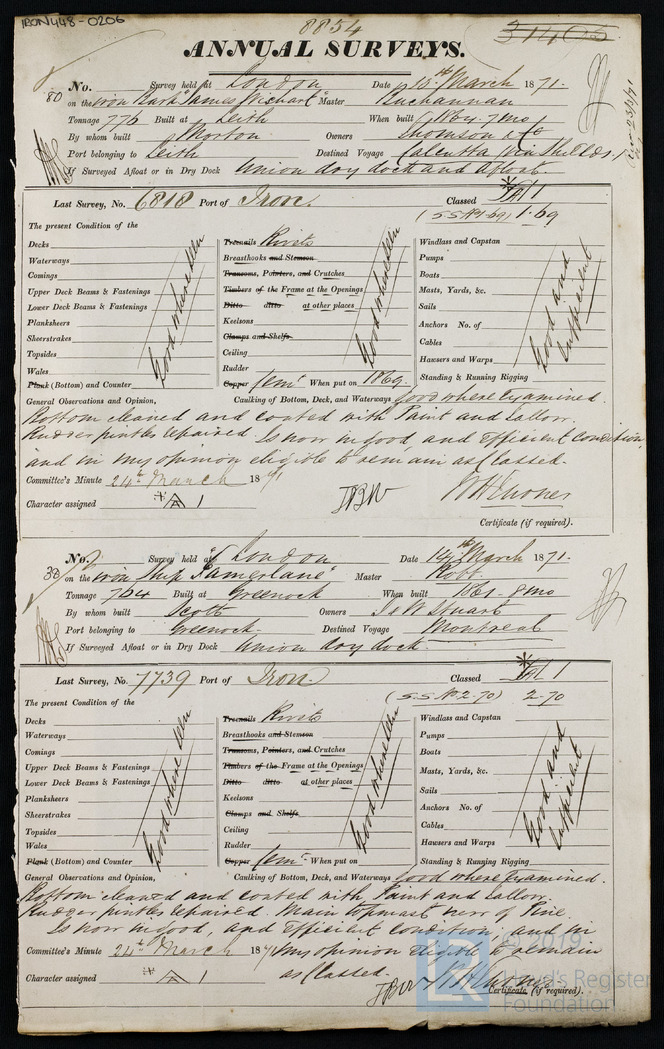 IRON448-0206
8854
31405
ANNUAL SURVEYS.
No. Survey held at London Date 15th March 1871.
80 on the iron Bark "James Wishart" Master Buchannan
Tonnage 776 Built at Leith When built 1867. 7mo
By whom built Morton Owners Thomson & Co
Port belonging to Leith Destined Voyage Calcutta via Shields.
If Surveyed Afloat or in Dry Dock Union dry dock and Afloat.
Last Survey, No. 6818 Port of Iron. Classed A 1
(SS No1-69) 1.69
The present Condition of the
Decks
Waterways
Comings
Upper Deck Beams & Fastenings
Lower Deck Beams & Fastenings
Planksheers
Sheerstrakes
Topsides
Wales
Plank (Bottom) and Counter
Good where seen
Treenails Rivets
Breasthooks and Stemson
Transoms, Pointers, and Crutches
Timbers of the Frame at the Openings
Ditto ditto at other places
Keelsons
Clamps and Shelfs
Ceiling
Rudder
Copper Cemt When put on 1869.
Good where seen
Windlass and Capstan
Pumps
Boats
Masts, Yards, &c.
Sails
Anchors No. of
Cables
Hawsers and Warps
Standing & Running Rigging
Good and Sufficient
General Observations and Opinion, Caulking of Bottom, Deck, and Waterways Good where Examined.
Bottom cleaned and coated with Paint and Tallow.
Rudder pintles repaired, Is now in good, and Efficient condition,
and in my opinion eligible to remain as Classed.
Committee's Minute 24th March 1871
Character assigned A 1
Certificate (if required).
No. Survey held at London Date 14th March 1871.
38 on the iron Ship "Tamerlane" Master Robb
Tonnage 764 Built at Greenock When built 1861 - 8mo
By whom built Scott Owners J & W Stuart
Port belonging to Greenock Destined Voyage Montreal
If Surveyed Afloat or in Dry Dock Union dry dock
Last Survey, No. 7739 Port of Iron. Classed A 1
(S.S No 2.70) 2-70
The present Condition of the
Decks
Waterways
Comings
Upper Deck Beams & Fastenings
Lower Deck Beams & Fastenings
Planksheers
Sheerstrakes
Topsides
Wales
Plank (Bottom) and Counter
Good where seen
Treenails Rivets
Breasthooks and Stemson
Transoms, Pointers, and Crutches
Timbers of the Frame at the Openings
Ditto ditto at other places
Keelsons
Clamps and Shelfs
Ceiling
Rudder
Copper Cemt When put on
Good where seen
Windlass and Capstan
Pumps
Boats
Masts, Yards, &c.
Sails
Anchors No. of
Cables
Hawsers and Warps
Standing & Running Rigging
Good and Sufficient
General Observations and Opinion, Caulking of Bottom, Deck, and Waterways Good where Examined
Bottom cleaned and coated with Paint and Tallow.
Rudder pintles repaired. Main topmast new of Pine.
Is now in good, and Efficient condition, and in
Committee's Minute 24th March 1871 my opinion eligible to remain
Character assigned A 1 as Classed.
Certificate (if required).
© 2019
Lloyd's Register
Foundation
LR